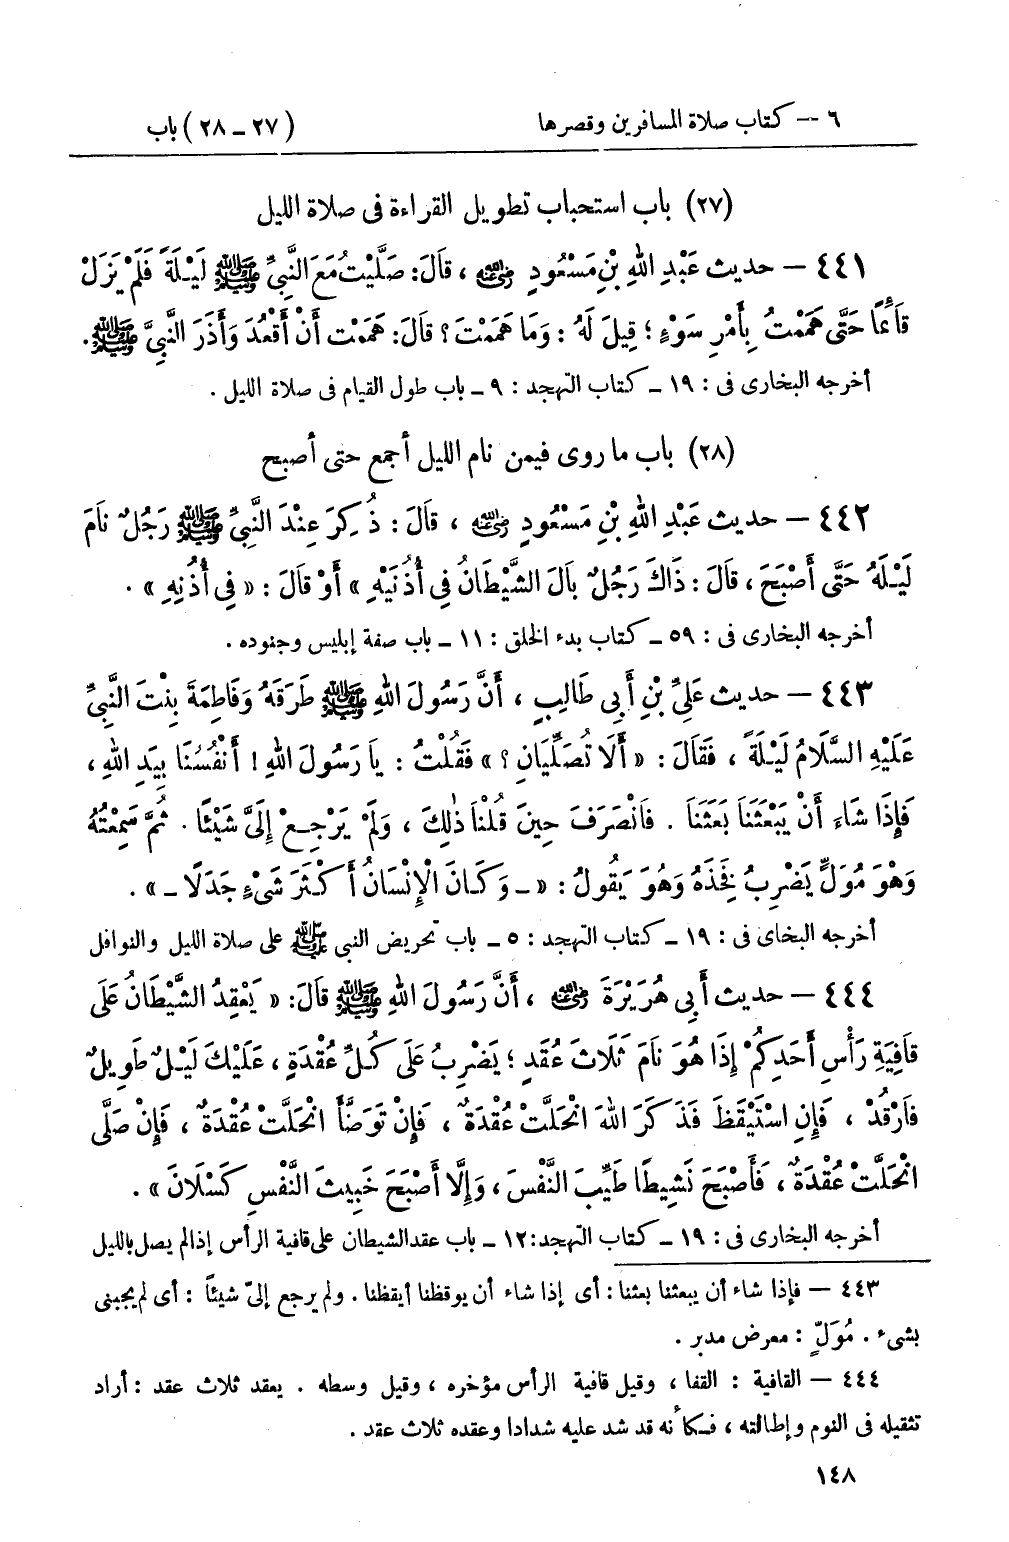 ٦ — كتاب صلاة المسافرين وقصرها (٢٧ – ٢٨) باب
(٢٧) باب استحباب تطويل القراءة فى صلاة الليل
٤٤١ — حديث عَبْدِ اللهِ بْنِ مَسْعُودٍ رضي الله عنه ، قَالَ: صَلَّيْتُ مَعَ النَّبِيِّ ﷺ لَيْلَةً فَلَمْ يَزَلْ
قَائِمًا حَتَّى هَمَمْتُ بِأَمْرِ سَوْءٍ ؛ قِيلَ لَهُ : وَمَا هَمَمْتَ ؟ قَالَ: هَمَمْت أَنْ أَقْعُدَ وَأَذَرَ النَّبِيَّ ﷺ .
أخرجه البخارى فى : ١٩ ـ كتاب التهجد : ٩ ـ باب طول القيام فى صلاة الليل .
(٢٨) باب ما روى فيمن نام الليل أجمع حتى أصبح
٤٤٢ — حديث عَبْدِ اللهِ بْنِ مَسْعُودٍ رضي الله عنه ، قَالَ : ذُكِرَ عِنْدَ النَّبِيِّ ﷺ رَجُلٌ نَامَ
لَيْلَهُ حَتَّى أَصْبَحَ ، قَالَ : ذَاكَ رَجُلٌ بَالَ الشَّيْطَانُ فِي أُذُنَيْهِ » أَوْ قَالَ : « فِي أُذُنِهِ » .
أخرجه البخارى فى : ٥٩ ـ كتاب بدء الخلق : ١١ ـ باب صفة إبليس وجنوده .
٤٤٣ — حديث عَلِيِّ بْنِ أَبِي طَالِبٍ ، أَنَّ رَسُولَ اللهِ ﷺ طَرَقَهُ وَفَاطِمَةَ بِنْتَ النَّبِيِّ
عَلَيْهِ السَّلَامُ لَيْلَةً ، فَقَالَ : « أَلَا تُصَلِّيَانِ ؟ » فَقُلْتُ : يَا رَسُولَ اللهِ ! أَنْفُسُنَا بِيَدِ اللهِ ،
فَإِذَا شَاءَ أَنْ يَبْعَثَنَا بَعَثَنَا . فَانْصَرَفَ حِينَ قُلْنَا ذٰلِكَ ، وَلَمْ يَرْجِعْ إِلَيَّ شَيْئًا . ثُمَّ سَمِعْتُهُ
وَهْوَ مُوَلٍّ يَضْرِبُ فَخِذَهُ وَهُوَ يَقُولُ : « ـ وَكَانَ الْإِنْسَانُ أَكْثَرَ شَيْءٍ جَدَلًا ـ » .
أخرجه البخاى فى : ١٩ ـ كتاب التهجد : ٥ ـ باب تحريض النبى ﷺ على صلاة الليل والنوافل
٤٤٤ — حديث أَبِي هُرَيْرَةَ رضي الله عنه ، أَنَّ رَسُولَ اللهِ ﷺ قَالَ: « يَعْقِدُ الشَّيْطَانُ عَلَى
قَافِيَةِ رَأْسِ أَحَدِكُمْ إِذَا هُوَ نَامَ ثَلَاثَ عُقَدٍ ؛ يَضْرِبُ عَلَى كُلِّ عُقْدَةٍ ، عَلَيْكَ لَيْلٌ طَوِيلٌ
فَارْقُدْ ، فَإِنِ اسْتَيْقَظَ فَذَكَرَ اللهَ انْحَلَّتْ عُقْدَةٌ ، فَإِنْ تَوَضَّأَ انْحَلَّتْ عُقْدَةٌ ، فَإِنْ صَلَّى
انْحَلَّتْ عُقْدَةٌ ، فَأَصْبَحَ نَشِيطًا طَيِّبَ النَّفْسِ ، وَإِلَّا أَصْبَحَ خَبِيثَ النَّفْسِ كَسْلَانَ » .
أخرجه البخارى فى : ١٩ ـ كتاب التهجد: ١٢ ـ باب عقد الشيطان على قافية الرأس إذا لم يصل بالليل
٤٤٣ — فإذا شاء أن يبعثنا بعثنا : أى إذا شاء أن يوقظنا أيقظنا . ولم يرجع إلىّ شيئاً : أى لم يجبنى
بشىء . مُوَلٍّ : معرض مدبر .
٤٤٤ — القافية : القفا ، وقيل قافية الرأس مؤخره ، وقيل وسطه . يعقد ثلاث عقد : أراد
تثقيله فى النوم وإطالته ، فكأنه قد شد عليه شدادا وعقده ثلاث عقد .
١٤٨